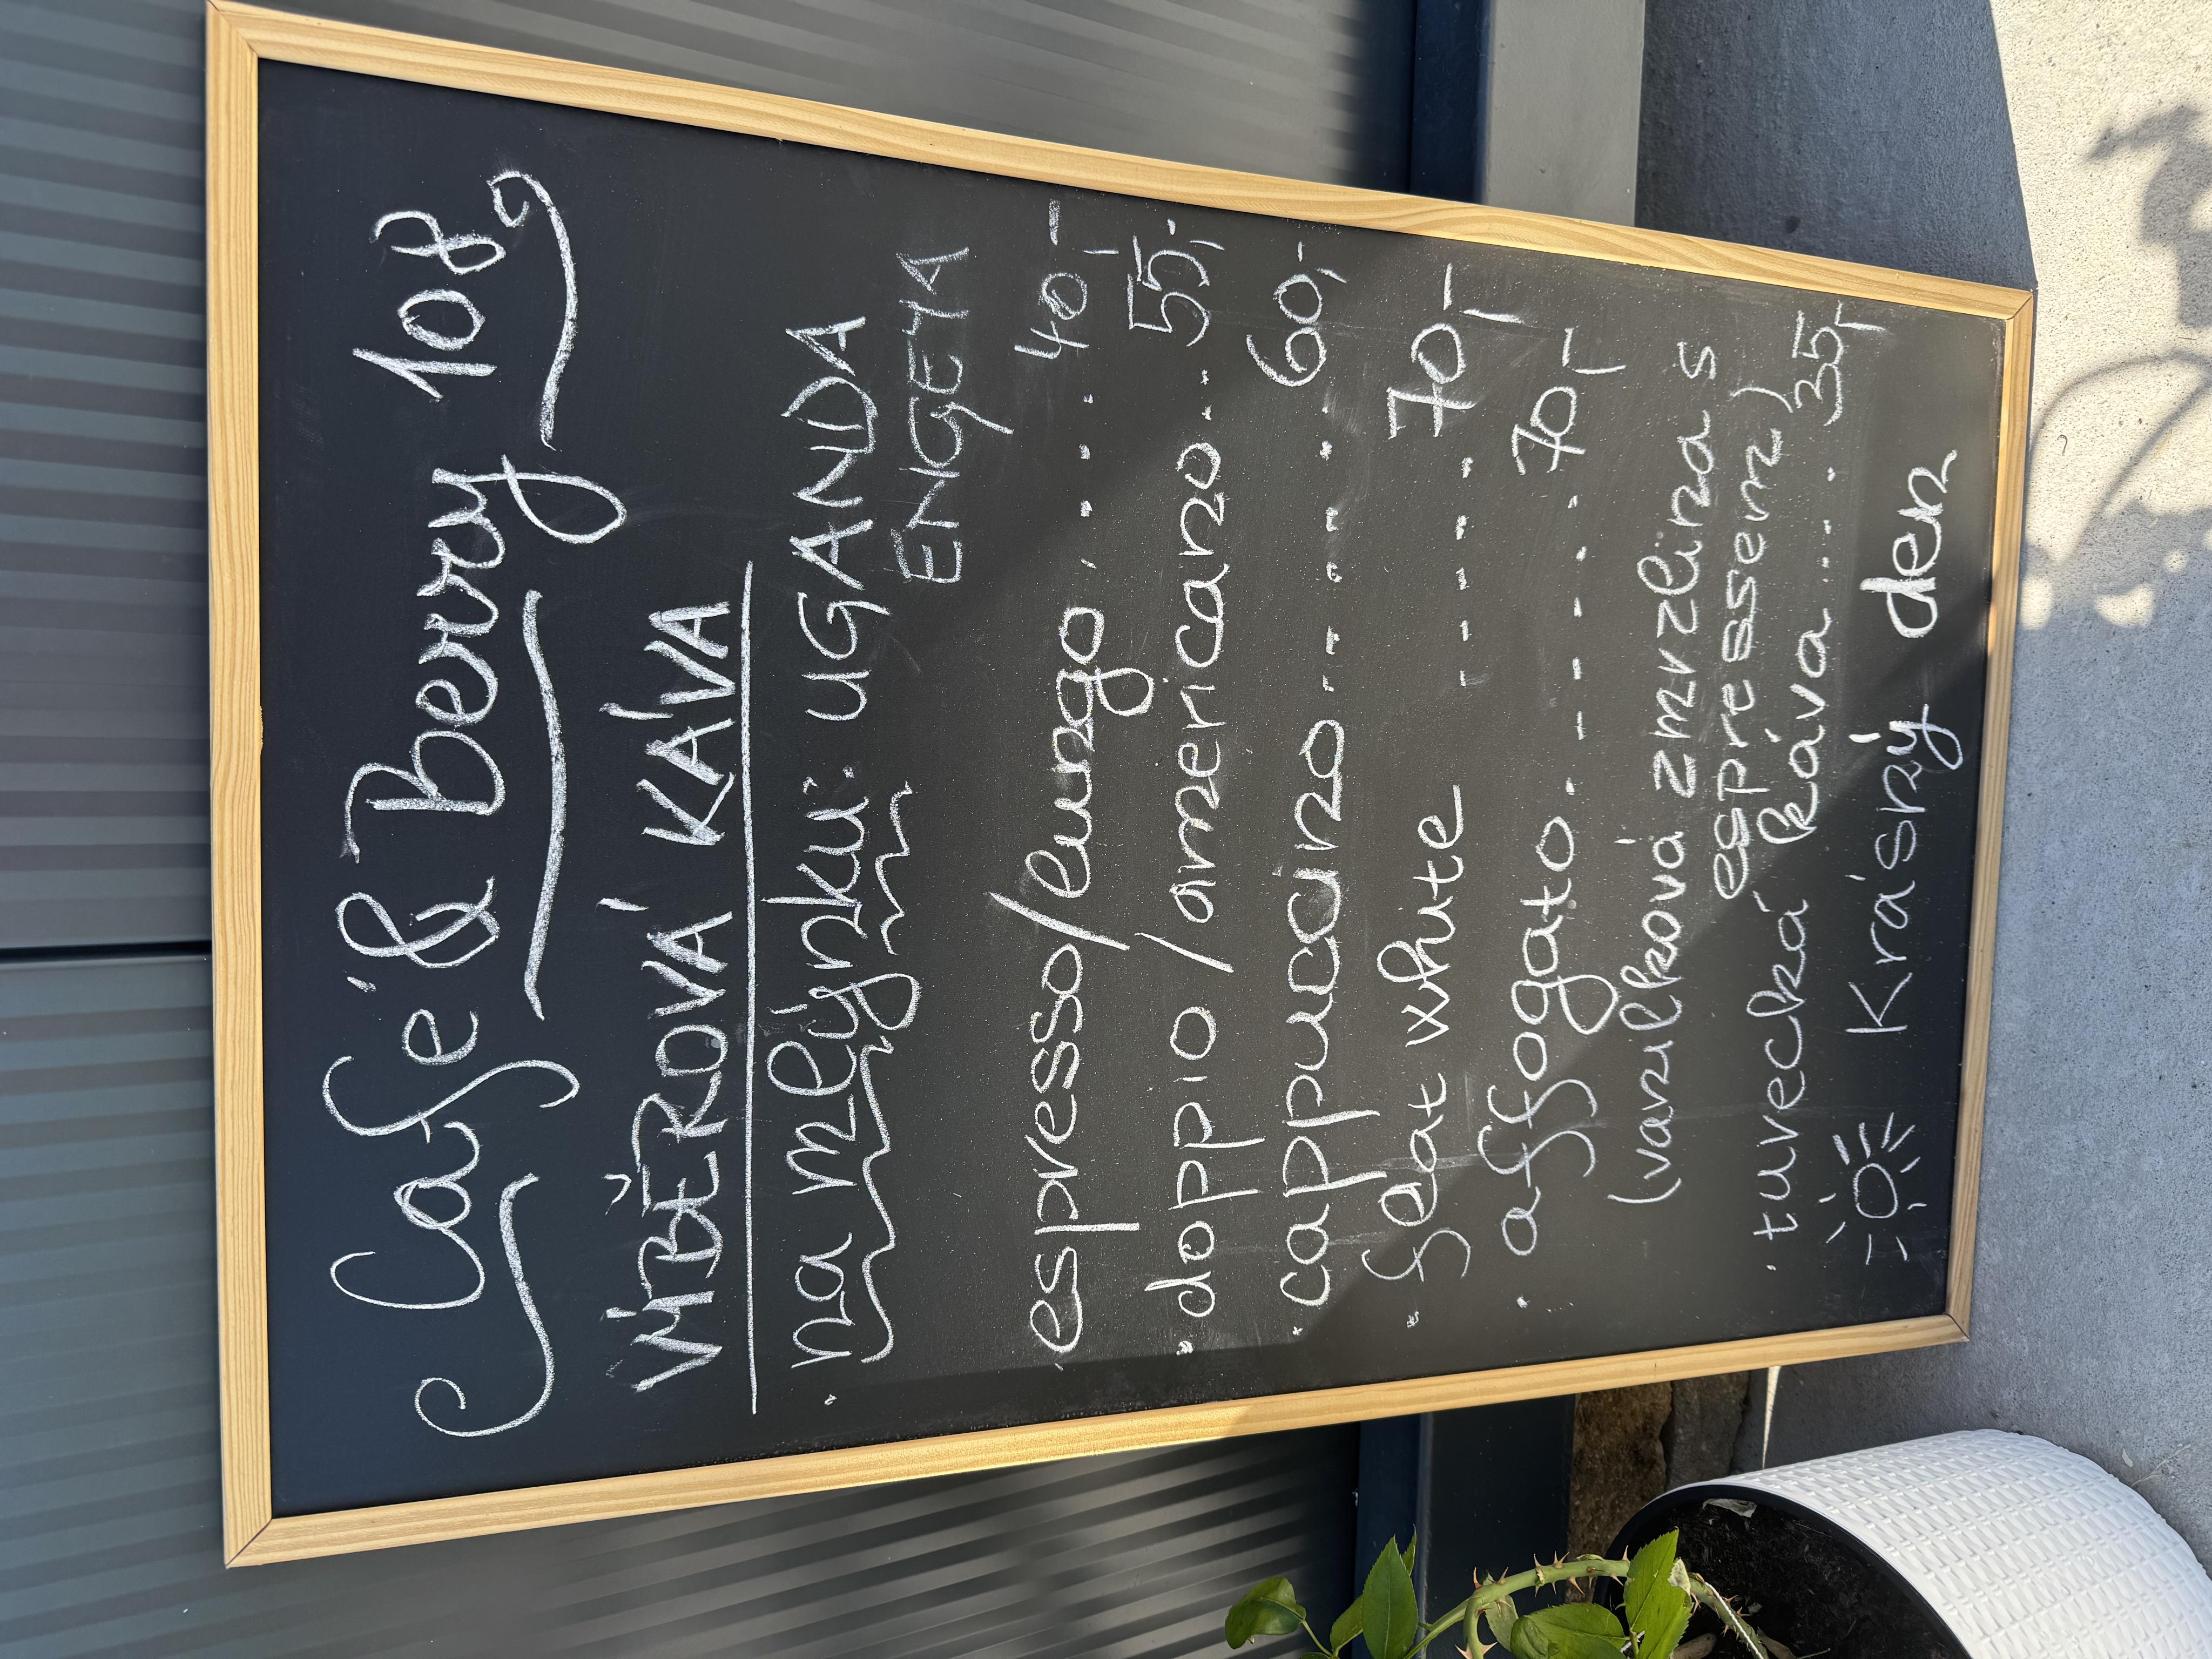 Café & Berry 108
VÝBĚROVÁ KÁVA
• na mlýnku: UGANDA
ENGEYA
• espresso/lungo. . . . . 40,-
• doppio / americano . . . 55,-
• cappuccino . . - - - - . 60,-
• flat white - - - - - . 70,-
• affogato . - - - - . . 70,-
(vanilková zmrzlina s
espressem)
• turecká káva . . . . . 35,-
Krásný den